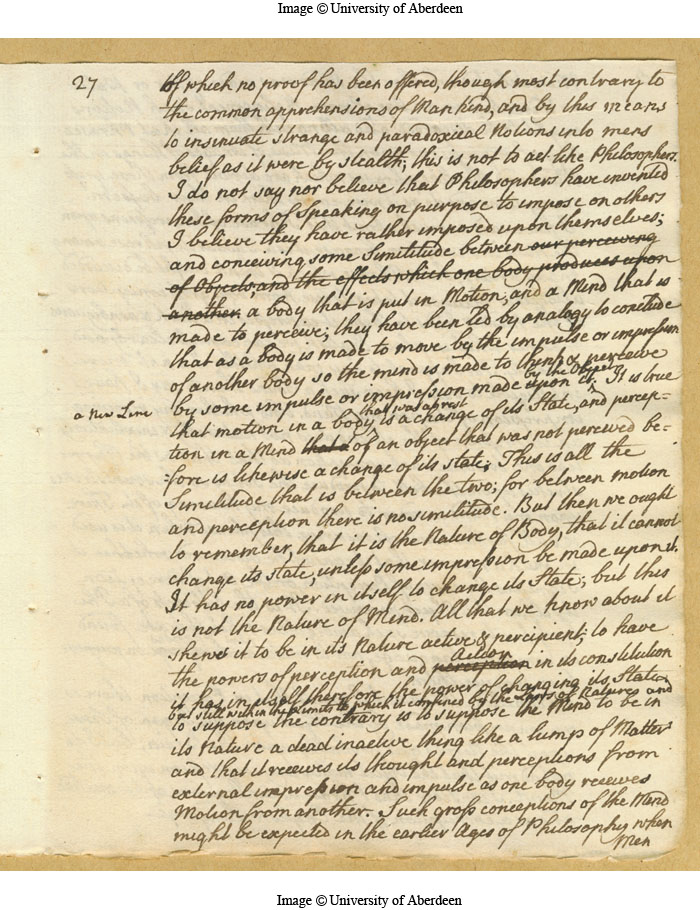 Image © University of Aberdeen
27
of which no proof has been offered, though most contrary to
the common apprehensions of Mankind, and by this means
to insinuate strange and paradoxical Notions into mens
belief as it were by stealth; this is not to act like Philosophers.
I do not say nor believe that Philosophers have invented
these forms of Speaking on purpose to impose on others
I believe they have rather imposed upon themselves;
and conceiving some Similitude between our perceiving
of Objects, and the effects which one body produces upon
another a body that is put in Motion, and a Mind that is
made to perceive; they have been led by analogy to conclude
that as a body is made to move by the impulse or impression
of another body so the mind is made to think & perceive
by some impulse or impression made upon it by the Object. It is true
a New Line
that motion in a body that was at rest is a change of its State, and percep-
tion in a Mind that a of an object that was not perceived be-
-fore is likewise a change of its state; This is all the
Similitude that is between the two; for between motion
and perception there is no similitude. But then we ought
to remember, that it is the Nature of Body, that it cannot
change its state, unless some impression be made upon it.
It has no power in itself to change its State; but this
is not the Nature of Mind. All that we know about it
shews it to be in its Nature active & percipient; to have
the powers of perception and perception Action in its constitution
it has in itself therefore the power of changing its State,
but still within the limits to which it is confined by the Laws of Nature; and
to suppose the contrary is to suppose the Mind to be in
its Nature a dead inactive thing like a lump of Matter
and that it receives its thought and perceptions from
external impression and impulse as one body receives
Motion from another. Such gross conceptions of the Mind
might be expected in the earlier Ages of Philosophy when
Men
Image © University of Aberdeen